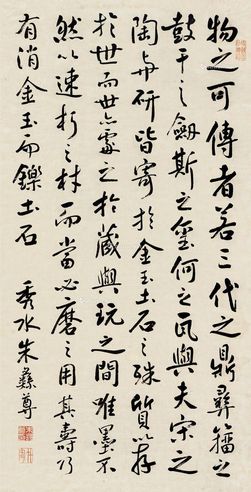 物之可傳者若三代之鼎彝籀之
鼓干之劍斯之璽何之瓦與夫宋之
陶与研皆寄於金玉土石之殊質以存
於世而世亦處之於藏與玩之間唯墨不
然以速朽之材而當必磨之用其壽乃
有消金玉而鑠土石 秀水朱彝尊